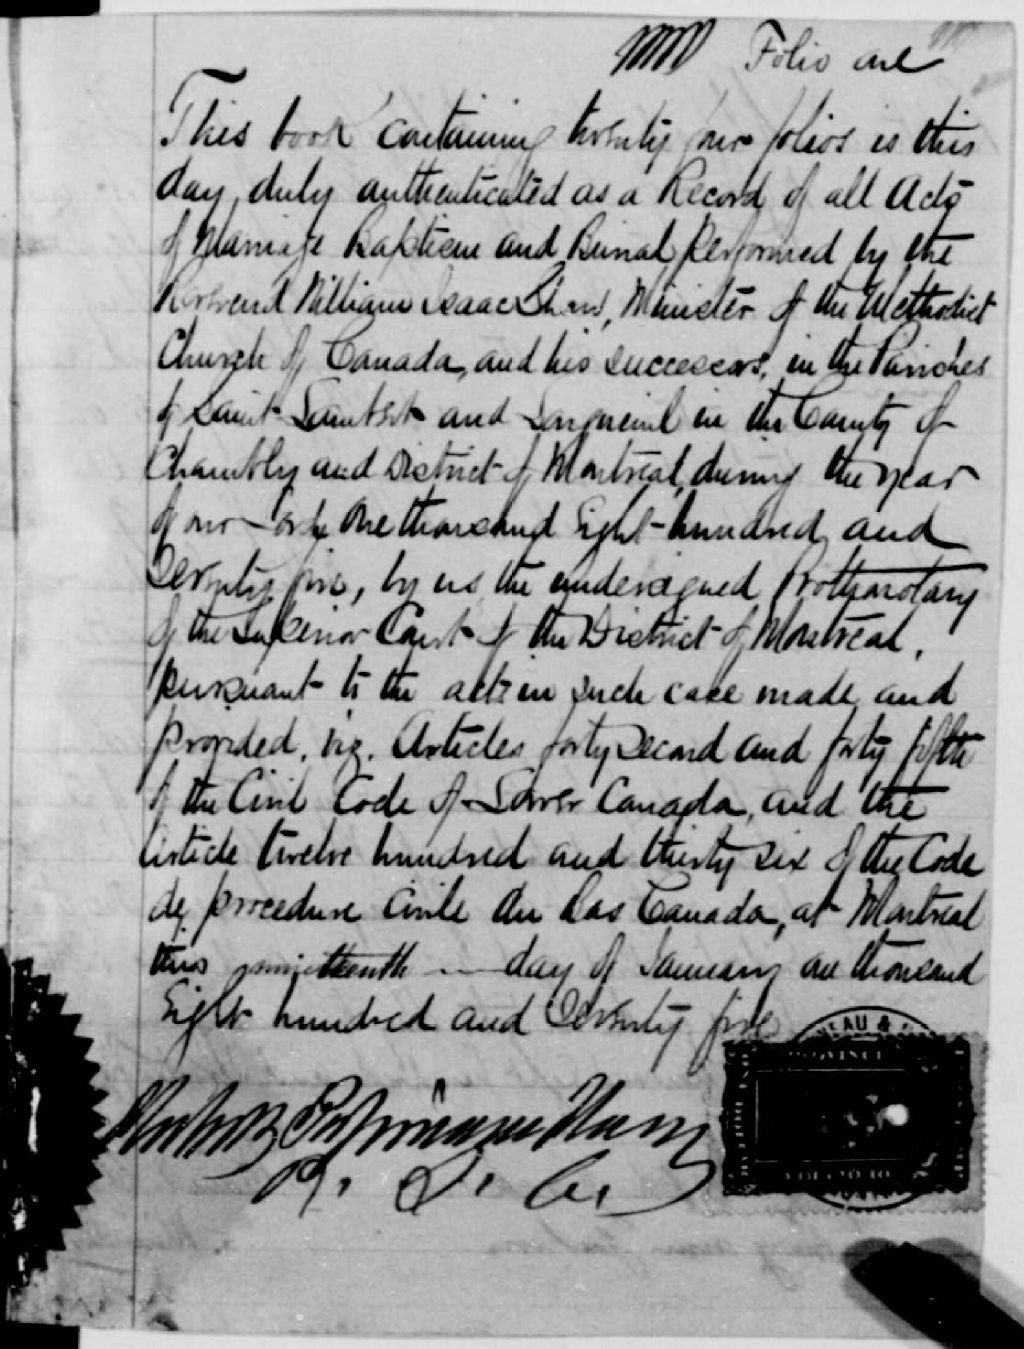 Folio one
This book containing twenty four folios is this
day duly authenticated as a Record of all Acts
of Marriage Baptism and Burial Performed by the
Reverend William Isaac Shaw, Minister of the Methodist
Church of Canada, and his successors, in the Parishes
of Saint Lambert and Longueuil in the County of
Chambly and District of Montreal, during the year
of our Lord, One thousand Eight hundred and
Seventy five, by us the undersigned Prothonotary
of the Superior Court of the District of Montreal,
pursuant to the acts in such case made, and
provided, viz. Articles forty second and forty fifth
of the Civil Code of Lower Canada, and the
article twelve hundred and thirty six of the Code
de procedure Civile du Bas Canada, at Montreal
this day of January one thousand
Eight hundred and Seventy five
P. S. C.
EAU &
PROVINCE